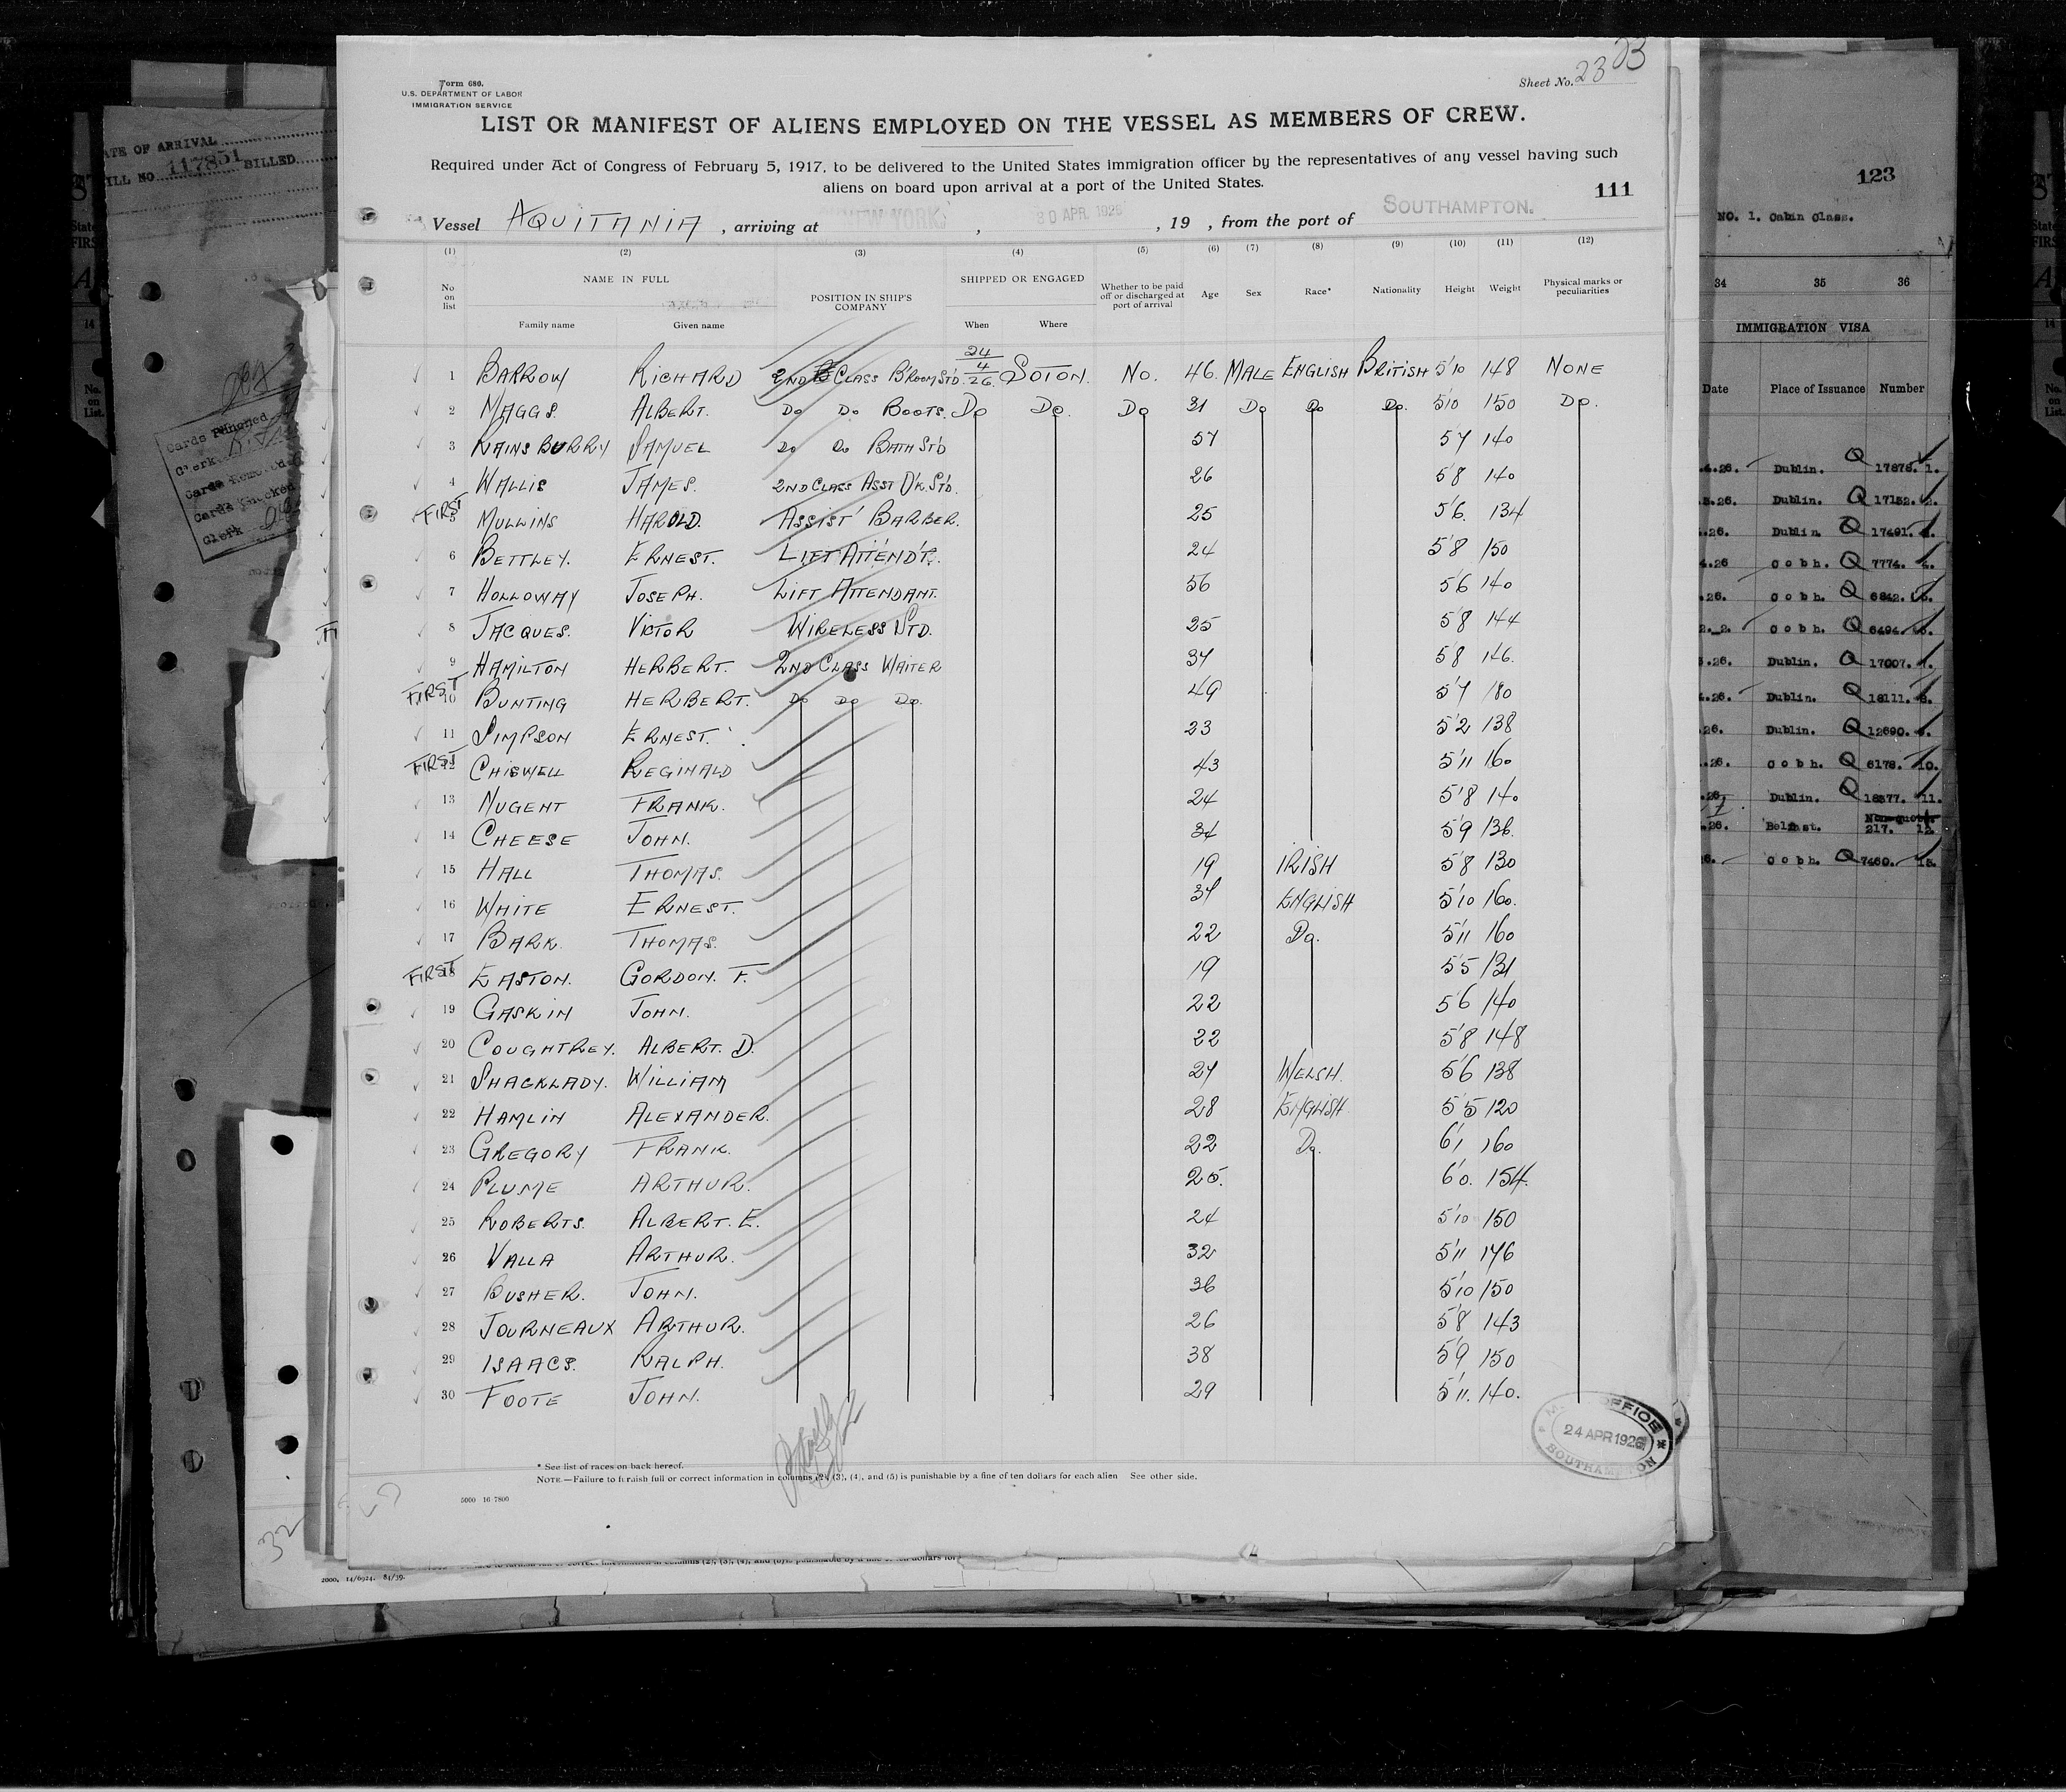 Form 680.
U.S. DEPARTMENT OF LABOR
IMMIGRATION SERVICE
Sheet No. 23 23
LIST OR MANIFEST OF ALIENS EMPLOYED ON THE VESSEL AS MEMBERS OF CREW.
Required under Act of Congress of February 5, 1917, to be delivered to the United States immigration officer by the representatives of any vessel having such
aliens on board upon arrival at a port of the United States.
111
Vessel AQUITANIA, arriving at NEW YORK, 30 APR 1926, 19 , from the port of SOUTHAMPTON.
(1) (2) (3) (4) (5) (6) (7) (8) (9) (10) (11) (12)
No on list NAME IN FULL POSITION IN SHIP'S COMPANY SHIPPED OR ENGAGED Whether to be paid off or discharged at port of arrival Age Sex Race* Nationality Height Weight Physical marks or peculiarities
Family name Given name When Where
1 BARROW RICHARD 2ND CLASS B'ROOM ST'D. 24/4/26 SOTON. NO. 46. MALE ENGLISH BRITISH 5'10 148 NONE
2 MAGGS. ALBERT. Do Do BOOTS. Do Do. Do 31 Do Do Do. 5'10 150 Do.
3 RAINSBURRY SAMUEL Do Do BATH ST'D 57 5'7 140
4 WALLIS JAMES. 2ND CLASS ASST D'K. ST'D. 26 5'8 140
FIRST 5 MULLINS HAROLD. ASSIST' BARBER. 25 5'6. 134
6 BETTLEY. ERNEST. LIFT ATTEND'T. 24 5'8 150
7 HOLLOWAY JOSEPH. LIFT ATTENDANT. 56 5'6 140
8 JACQUES. VICTOR WIRELESS STD. 25 5'8 144
9 HAMILTON HERBERT. 2ND CLASS WAITER 37 5'8 146.
FIRST 10 BUNTING HERBERT. Do Do Do. 49 5'7 180
11 SIMPSON ERNEST. 23 5'2 138
FIRST 12 CHISWELL REGINALD 43 5'11 160
13 NUGENT FRANK. 24 5'8 140
14 CHEESE JOHN. 34 5'9 136.
15 HALL THOMAS. 19 IRISH 5'8 130
16 WHITE ERNEST. 37 ENGLISH 5'10 160.
17 BARK. THOMAS. 22 Do. 5'11 160
FIRST 18 EASTON. GORDON. F. 19 5'5 131
19 GASKIN JOHN. 22 5'6 140
20 COUGHTREY. ALBERT. D. 22 5'8 148
21 SHACKLADY. WILLIAM 27 WELSH. 5'6 138
22 HAMLIN ALEXANDER. 28 ENGLISH 5'5 120
23 GREGORY FRANK. 22 Do. 6'1 160
24 PLUME ARTHUR. 25. 6'0. 154.
25 ROBERTS. ALBERT. E. 24 5'10 150
26 VALLA ARTHUR. 32 5'11 176
27 BUSHER. JOHN. 36 5'10 150
28 JOURNEAUX ARTHUR. 26 5'8 143
29 ISAACS. RALPH. 38 5'9 150
30 FOOTE JOHN. 29 5'11. 140.
OFFICE
24 APR 1926
SOUTHAMPTON
* See list of races on back hereof.
NOTE.—Failure to furnish full or correct information in columns (2), (3), (4), and (5) is punishable by a fine of ten dollars for each alien See other side.
5000 16 7800
32
2000. 14/6924. 84/39.
DATE OF ARRIVAL
BILL NO 117851 BILLED
Cards Punched
Clerk
Cards Removed
Cards Checked
Clerk
123
NO. 1. Cabin Class.
34 35 36
IMMIGRATION VISA
Date Place of Issuance Number
.4.26. Dublin. Q 17878. 1.
.3.26. Dublin. Q 17152. 2.
.26. Dublin. Q 17491.
.26 Cobh. Q 7774. 4.
.26. Cobh. Q 6842.
Cobh. Q 6494.
.26. Dublin. Q 17007. 7.
.26. Dublin. Q 18111. 8.
26. Dublin. Q 12690.
.26. Cobh. Q 6178. 10.
.26. Dublin. Q 18377. 11.
.26. Belfast. Non-quota 217. 12.
Cobh. Q 7460. 13.